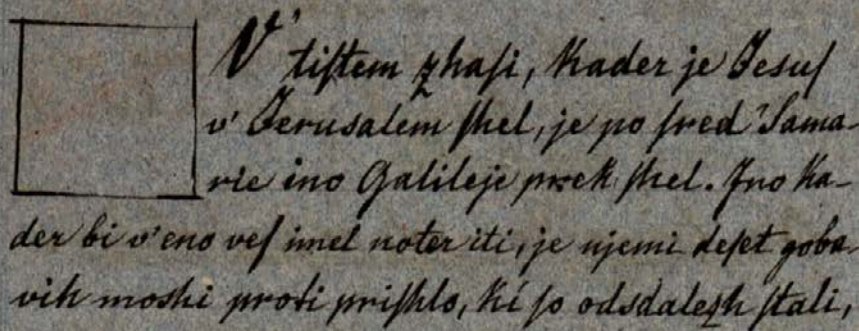 V' tiſtem zhaſi, kader je Jesuſ
v' Jerusalem ſhel, je po ſred Sama-
rie ino Galileje prek ſhel. Ino ka-
der bi v' eno veſ imel noter iti, je njemi deſet goba-
vih moshi proti priſhlo, ki ſo odsdalezh ſtali,